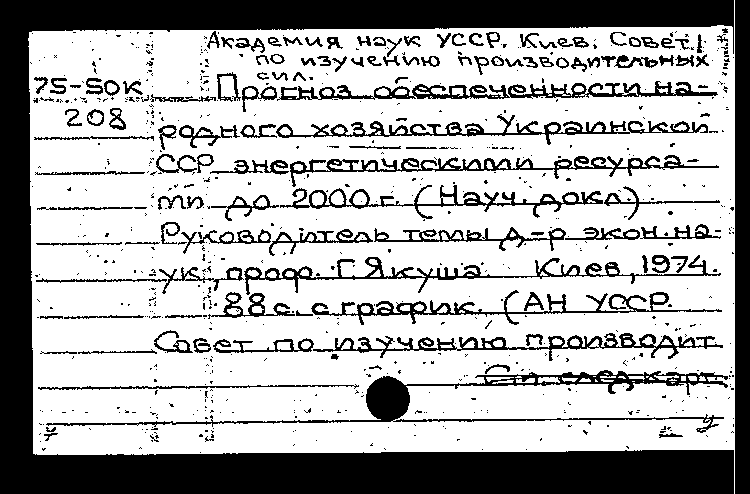 Академия наук УССР. Киев. Совет
по изучению производительных
сил.
75-50к
208
Прогноз обеспеченности на-
родного хозяйства Украинской
ССР энергетическими ресурса-
ми до 2000 г. (Науч. докл.)
Руководитель темы д-р экон. на-
ук, проф. Г. Якуша. Киев, 1974.
88 с. с график. (АН УССР.
Совет по изучению производит
См. след. карт.